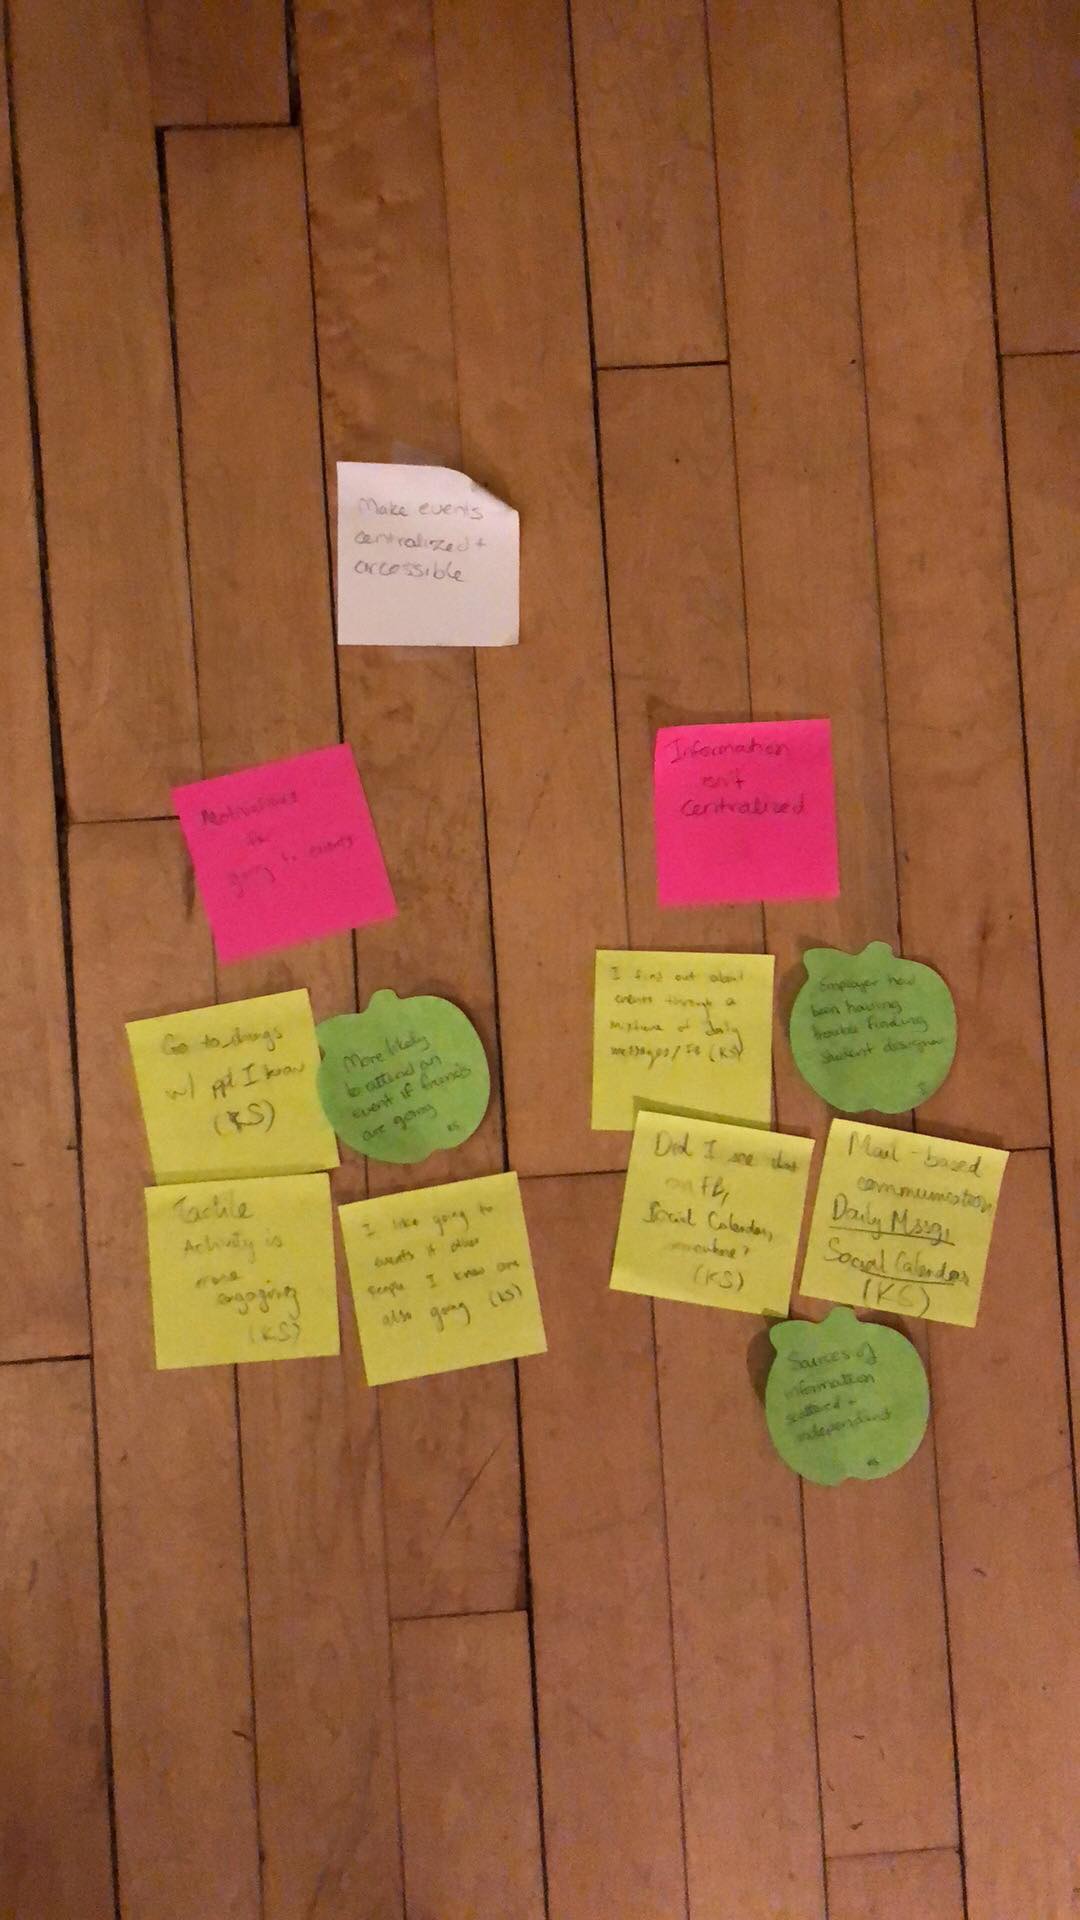 Make events
centralized +
accessible
Motivations
for
going to events
Information
isn't
centralized
Go to things
w/ ppl I know
(KS)
More likely
to attend an
event if friends
are going
KS
Tactile
Activity is
more
engaging
(KS)
I like going to
events if other
people I know are
also going (KS)
I find out about
events through a
mixture of daily
messages/FB (KS)
Employer has
been having
trouble finding
student designer
Did I see that
on FB,
Social Calendar,
somewhere?
(KS)
Mail-based
communication
Daily Mssg,
Social Calendar
(KS)
Sources of
information
scattered +
independent
KS